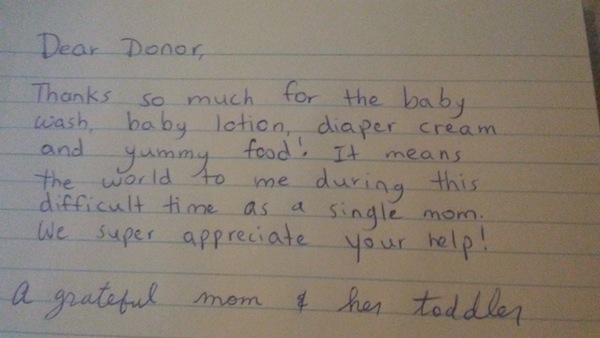 Dear Donor,
Thanks so much for the baby
wash, baby lotion, diaper cream
and yummy food! It means
the world to me during this
difficult time as a single mom.
We super appreciate your help!
A grateful mom & her toddler